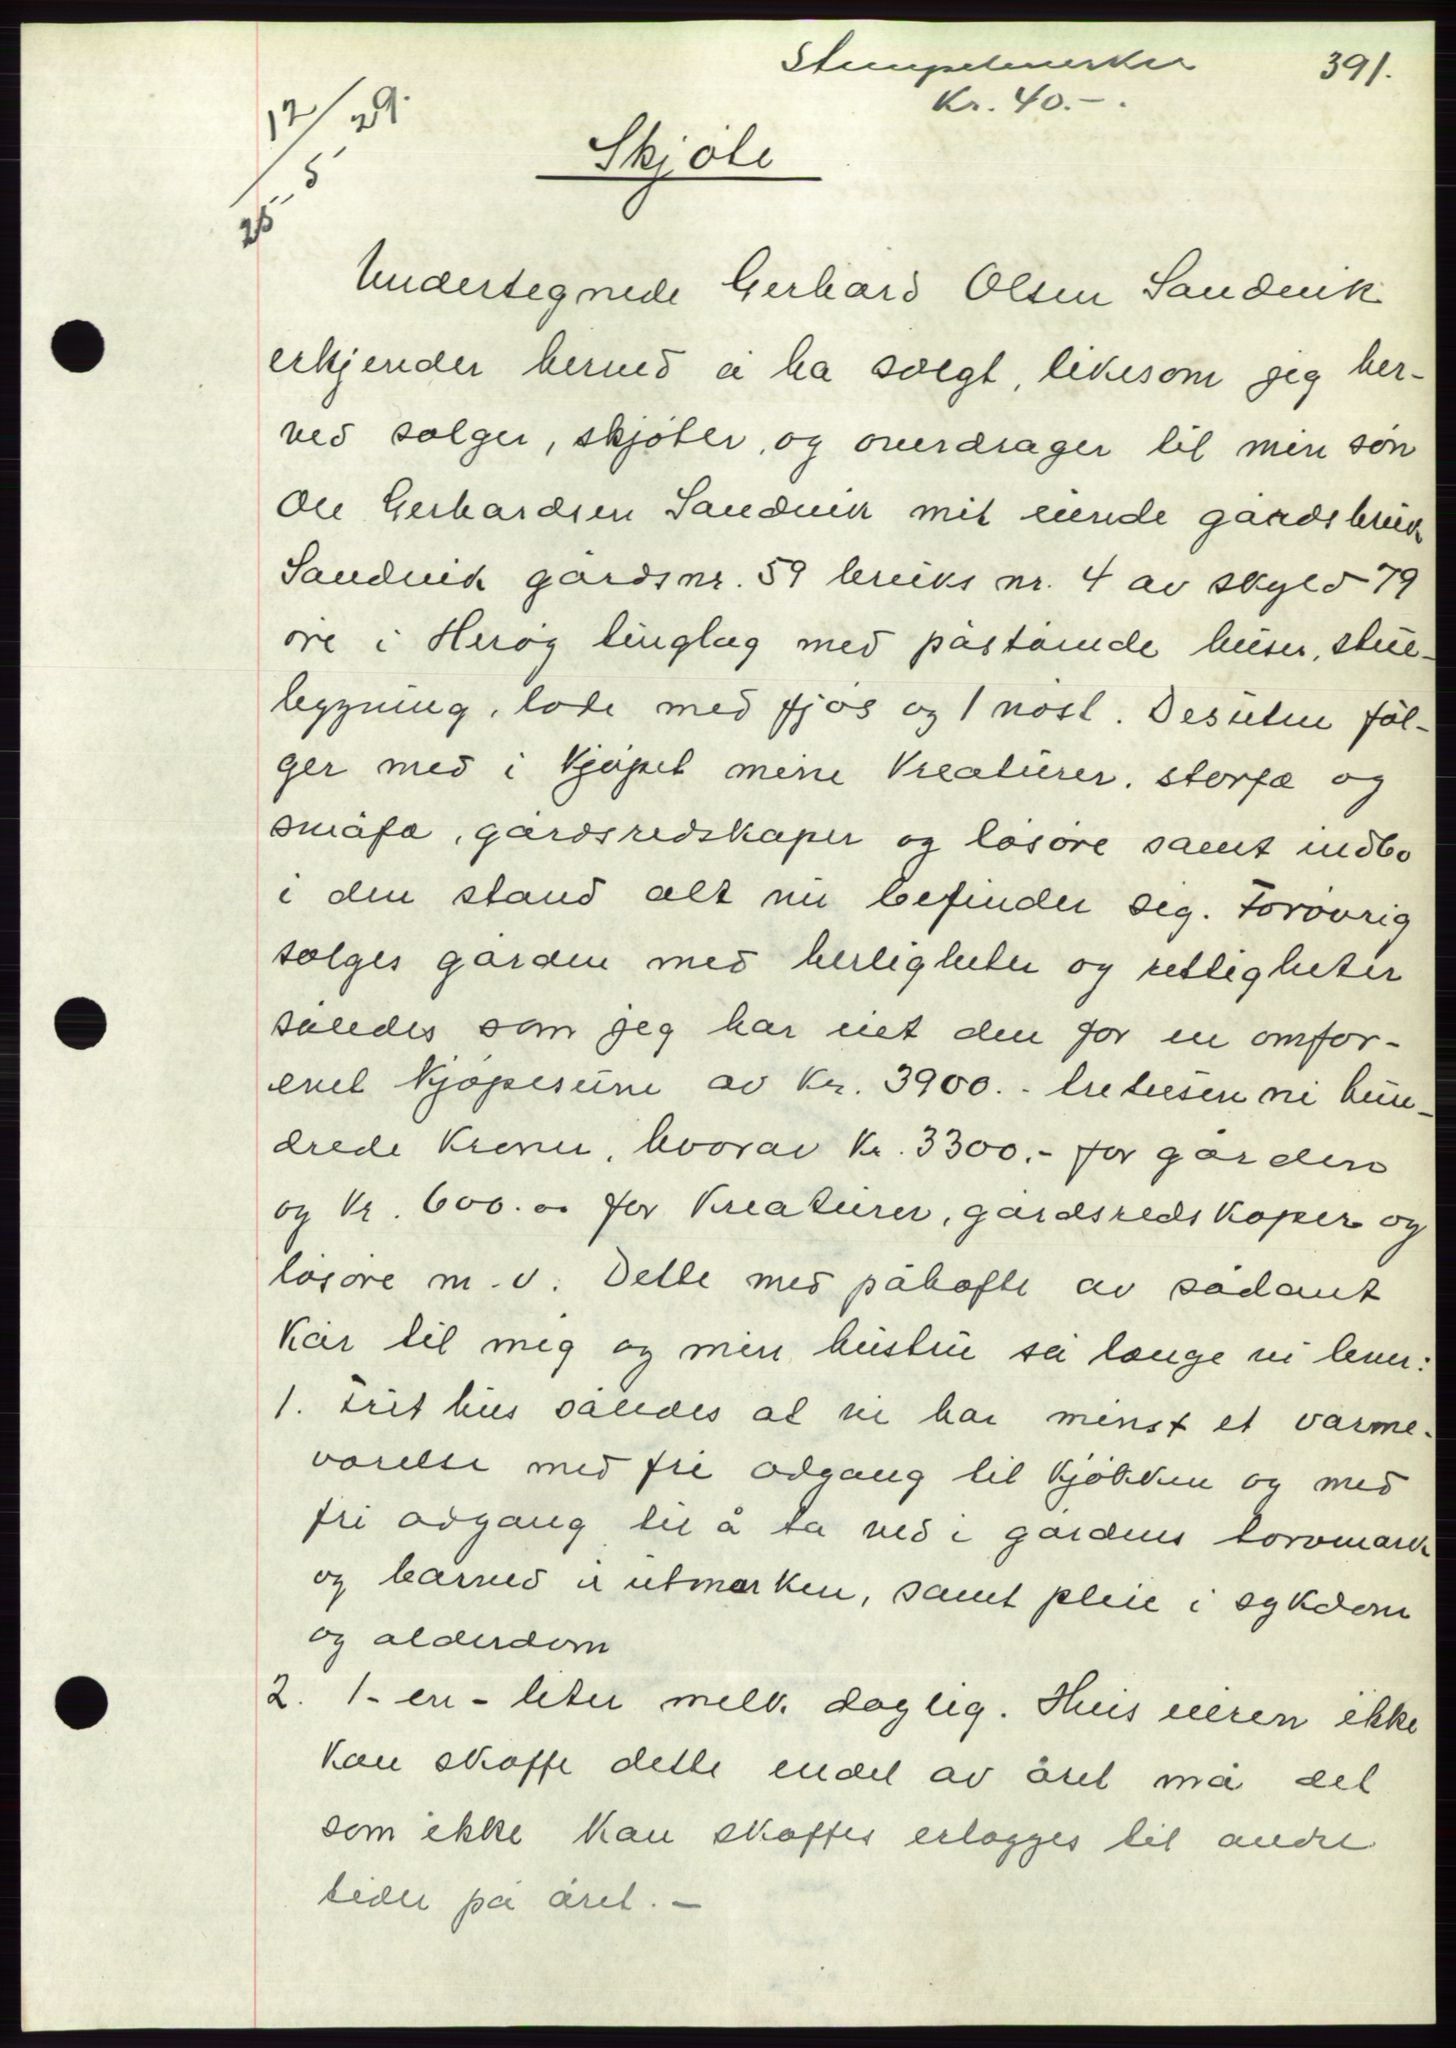 Stempelmerker 391.
Kr. 40.-.
12/5-29.
25
Skjøte
Undertegnede Gerhard Olsen Sandvik
erkjender herved å ha sælgt, likesom jeg her-
ved sælger, skjøter, og overdrager til min søn
Ole Gerhardsen Sandvik mit eiende gårdsbruk
Sandvik gårdsnr. 59 bruks nr. 4 av skyld 79
øre i Herøy tinglag med påstående huser, stue-
bygning, løde med fjøs og 1 nøst. Desuten føl-
ger med i kjøpet mine kreaturer, storfæ og
småfæ, gårdsredskaper og løsøre samt indbo
i den stand alt nu befinder sig. Forøvrig
sælges gården med herligheter og rettigheter
således som jeg har eiet den for en omfor-
enet kjøpesum av Kr. 3900.- tretusen ni hun-
drede kroner, hvorav Kr. 3300.- for gården
og Kr. 600.00 for kreaturer, gårdsredskaper og
løsøre m.v. Dette med påhæfte av sådant
kår til mig og min hustru så længe vi lever:
1. Frit hus således at vi har minst et varme-
værelse med fri adgang til kjøkken og med
fri adgang til å ta ved i gårdens torvmark
og barved i utmarken, samt pleie i sykdom
og alderdom
2. 1- en - liter melk daglig. Hvis eieren ikke
kan skaffe dette endel av året må det
som ikke kan skaffes erlægges til andre
tider på året. -